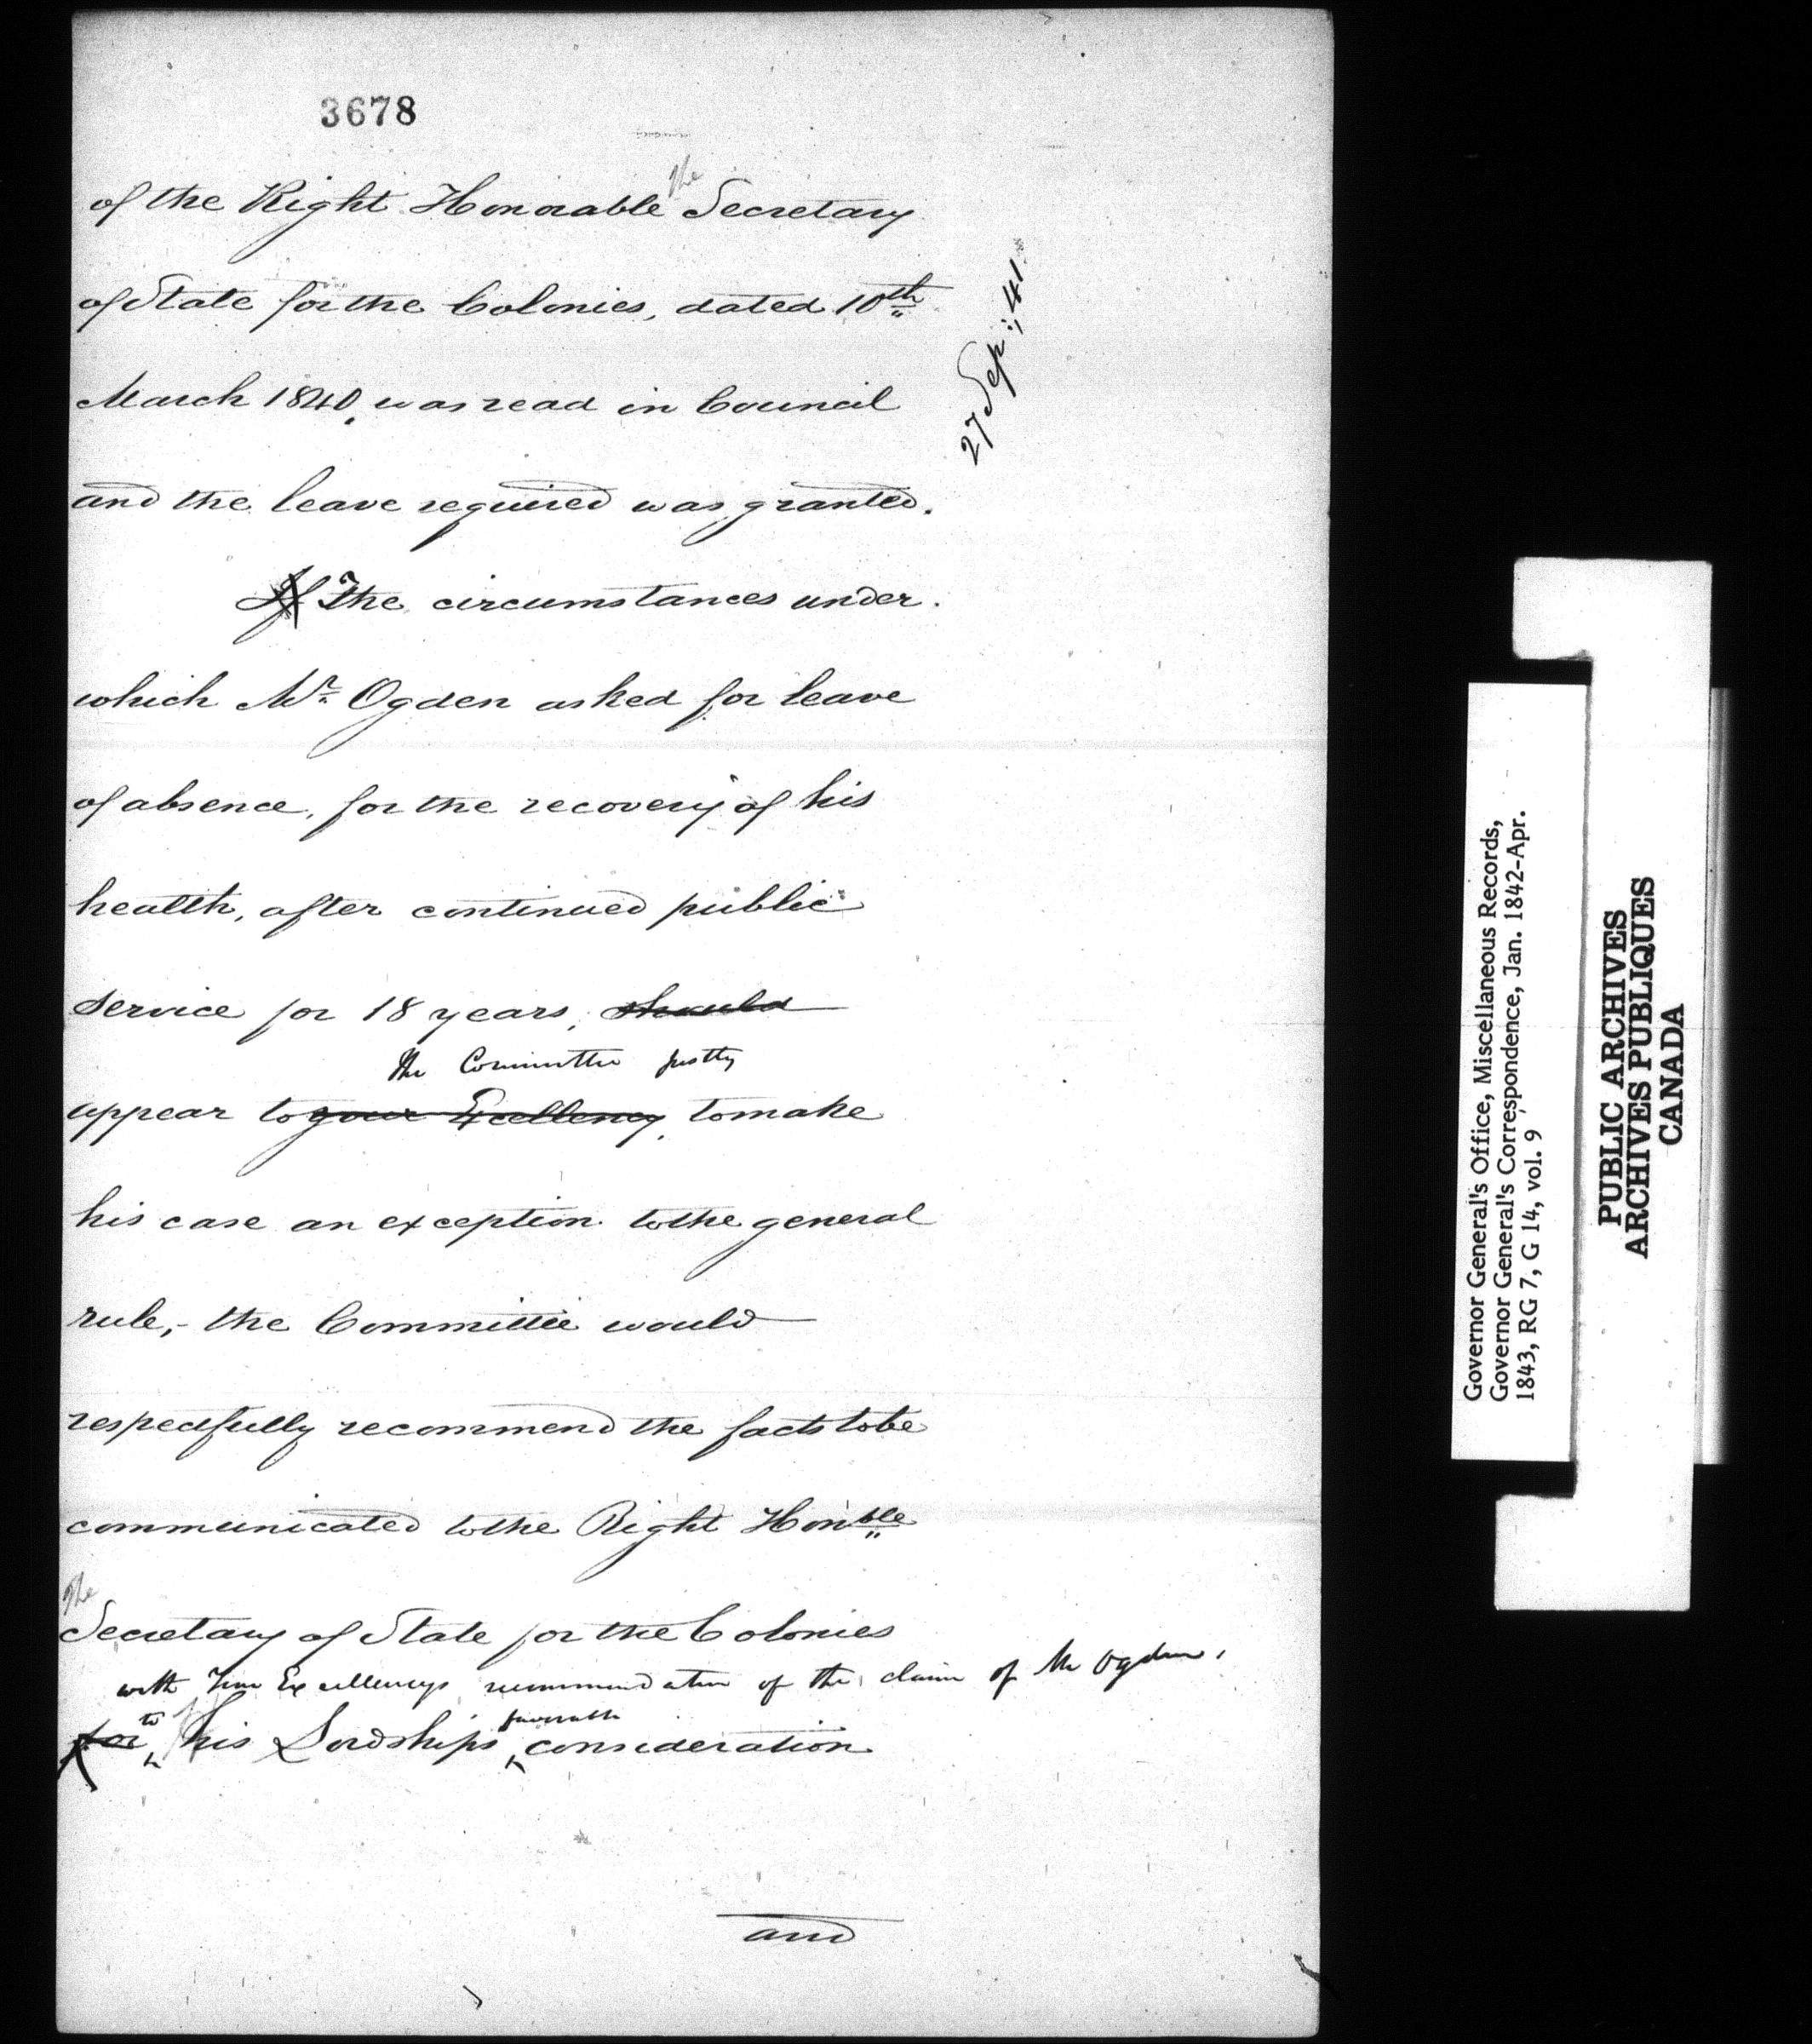 3678
the
of the Right Honorable Secretary
of State for the Colonies, dated 10th
March 1840, was read in Council
and the leave required was granted.
27 Sep: 41.
If The circumstances under
which Mr Ogden asked for leave
of absence, for the recovery of his
health, after continued public
service for 18 years, should
the Committee justly
appear to your Excellency, to make
his case an exception to the general
rule,- the Committee would
respectfully recommend the facts to be
communicated to the Right Honble
The
Secretary of State for the Colonies
with Your Excellencys recommendation of the claim of Mr Ogden,
to favorable
for his Lordships consideration
and
Governor General's Office, Miscellaneous Records,
Governor General's Correspondence, Jan. 1842-Apr.
1843, RG 7, G 14, vol. 9
PUBLIC ARCHIVES
ARCHIVES PUBLIQUES
CANADA